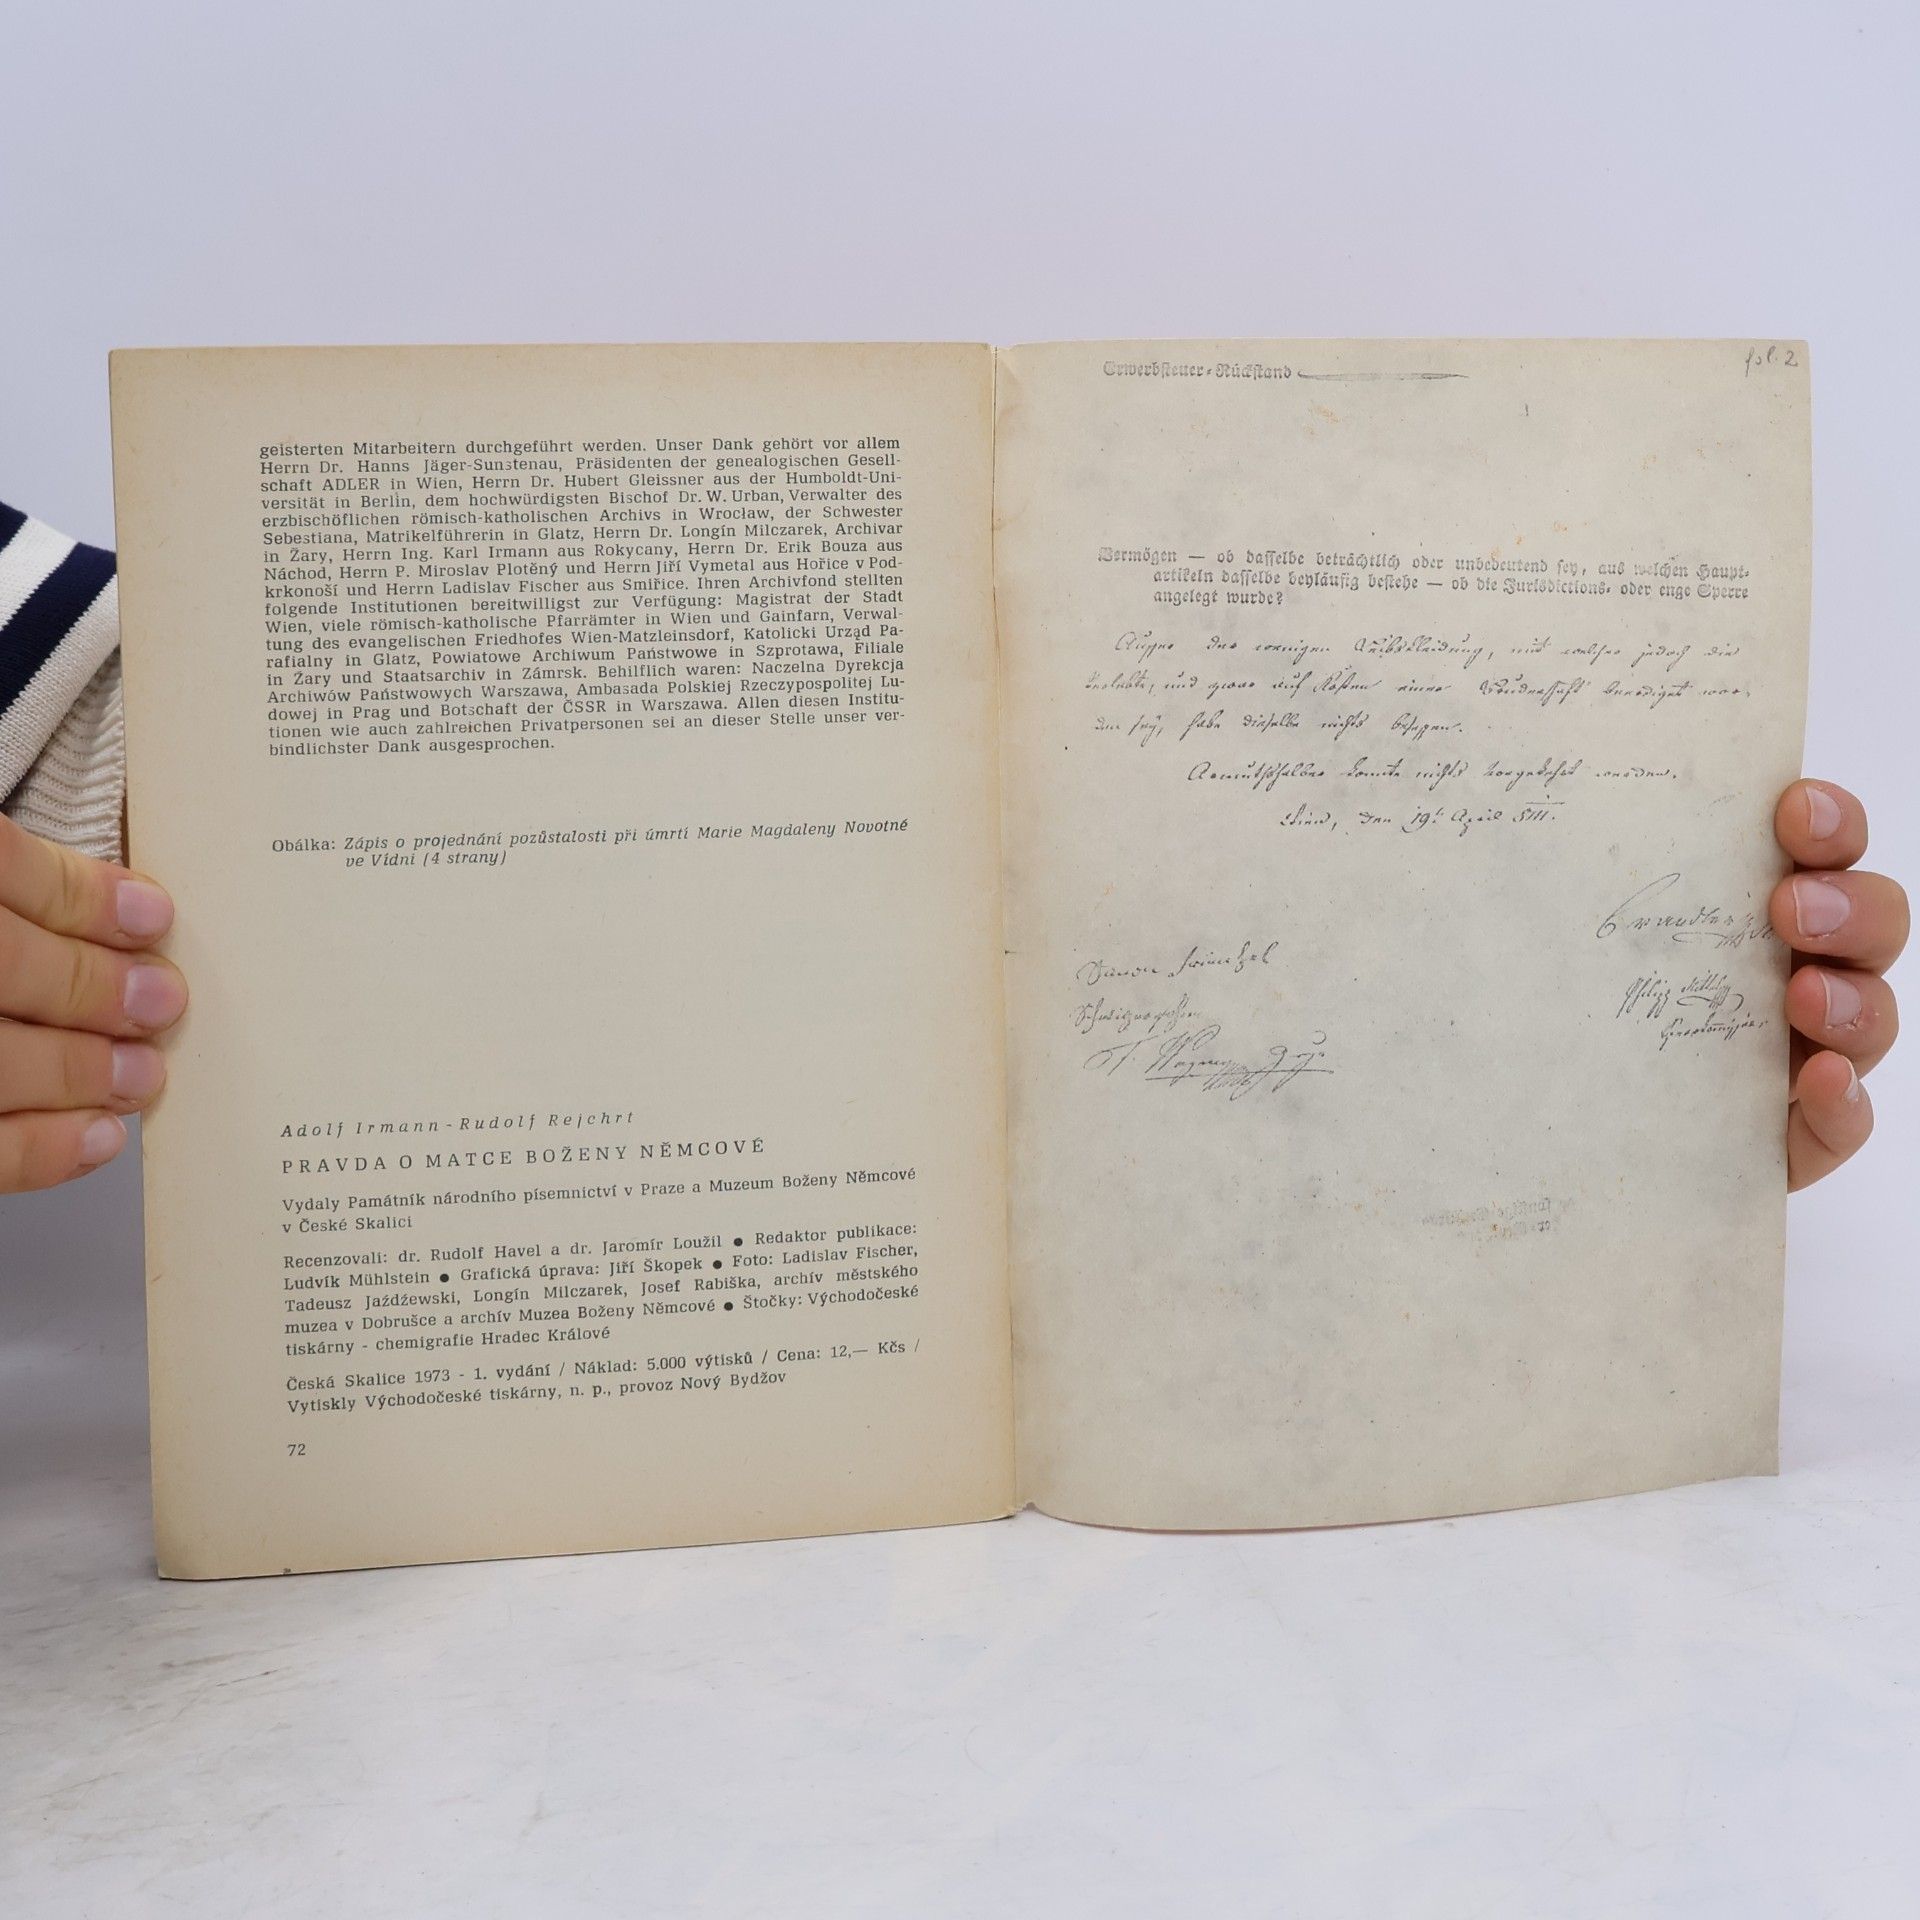 geisterten Mitarbeitern durchgeführt werden. Unser Dank gehört vor allem
Herrn Dr. Hanns Jäger-Sunstenau, Präsidenten der genealogischen Gesell-
schaft ADLER in Wien, Herrn Dr. Hubert Gleissner aus der Humboldt-Uni-
versität in Berlin, dem hochwürdigsten Bischof Dr. W. Urban, Verwalter des
erzbischöflichen römisch-katholischen Archivs in Wrocław, der Schwester
Sebestiana, Matrikelführerin in Glatz, Herrn Dr. Longín Milczarek, Archivar
in Żary, Herrn Ing. Karl Irmann aus Rokycany, Herrn Dr. Erik Bouza aus
Náchod, Herrn P. Miroslav Plotěný und Herrn Jiří Vymetal aus Hořice v Pod-
krkonoší und Herrn Ladislav Fischer aus Smiřice. Ihren Archivfond stellten
folgende Institutionen bereitwilligst zur Verfügung: Magistrat der Stadt
Wien, viele römisch-katholische Pfarrämter in Wien und Gainfarn, Verwal-
tung des evangelischen Friedhofes Wien-Matzleinsdorf, Katolicki Urząd Pa-
rafialny in Glatz, Powiatowe Archiwum Państwowe in Szprotawa, Filiale
in Żary und Staatsarchiv in Zámrsk. Behilflich waren: Naczelna Dyrekcja
Archiwów Państwowych Warszawa, Ambasada Polskiej Rzeczypospolitej Lu-
dowej in Prag und Botschaft der ČSSR in Warszawa. Allen diesen Institu-
tionen wie auch zahlreichen Privatpersonen sei an dieser Stelle unser ver-
bindlichster Dank ausgesprochen.
Obálka: Zápis o projednání pozůstalosti při úmrtí Marie Magdaleny Novotné
ve Vídni (4 strany)
Adolf Irmann - Rudolf Rejchrt
PRAVDA O MATCE BOŽENY NĚMCOVÉ
Vydaly Památník národního písemnictví v Praze a Muzeum Boženy Němcové
v České Skalici
Recenzovali: dr. Rudolf Havel a dr. Jaromír Loužil ● Redaktor publikace:
Ludvík Mühlstein ● Grafická úprava: Jiří Škopek ● Foto: Ladislav Fischer,
Tadeusz Jaźdźewski, Longín Milczarek, Josef Rabiška, archív městského
muzea v Dobrušce a archív Muzea Boženy Němcové ● Štočky: Východočeské
tiskárny - chemigrafie Hradec Králové
Česká Skalice 1973 - 1. vydání / Náklad: 5.000 výtisků / Cena: 12,— Kčs /
Vytiskly Východočeské tiskárny, n. p., provoz Nový Bydžov
72
fol. 2
Erwerbsteuer-Rückstand
Vermögen — ob dasselbe beträchtlich oder unbedeutend sey, aus welchen Haupt-
artikeln dasselbe beyläufig bestehe — ob die Jurisdictions- oder enge Sperre
angelegt wurde?
Ausser der wenigen Leibskleidung, mit welcher jedoch die
Verlebte, und zwar auf Kosten einer Bruderschaft beerdiget wor-
den sey, habe dieselbe nichts besessen.
Armuthshalber konnte nichts vorgekehrt werden.
Wien, den 19t April